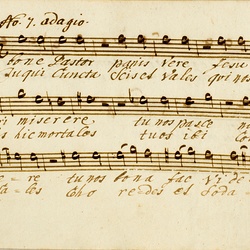 No. 7. adagio.
bone Pastor panis vere Jesu
Tu qui Cuncta Scis et Vales qui nos
miserere, tu nos pasce
hic mortales tuos ibi
re tu nos bona fac vide
les coho redes et Soda